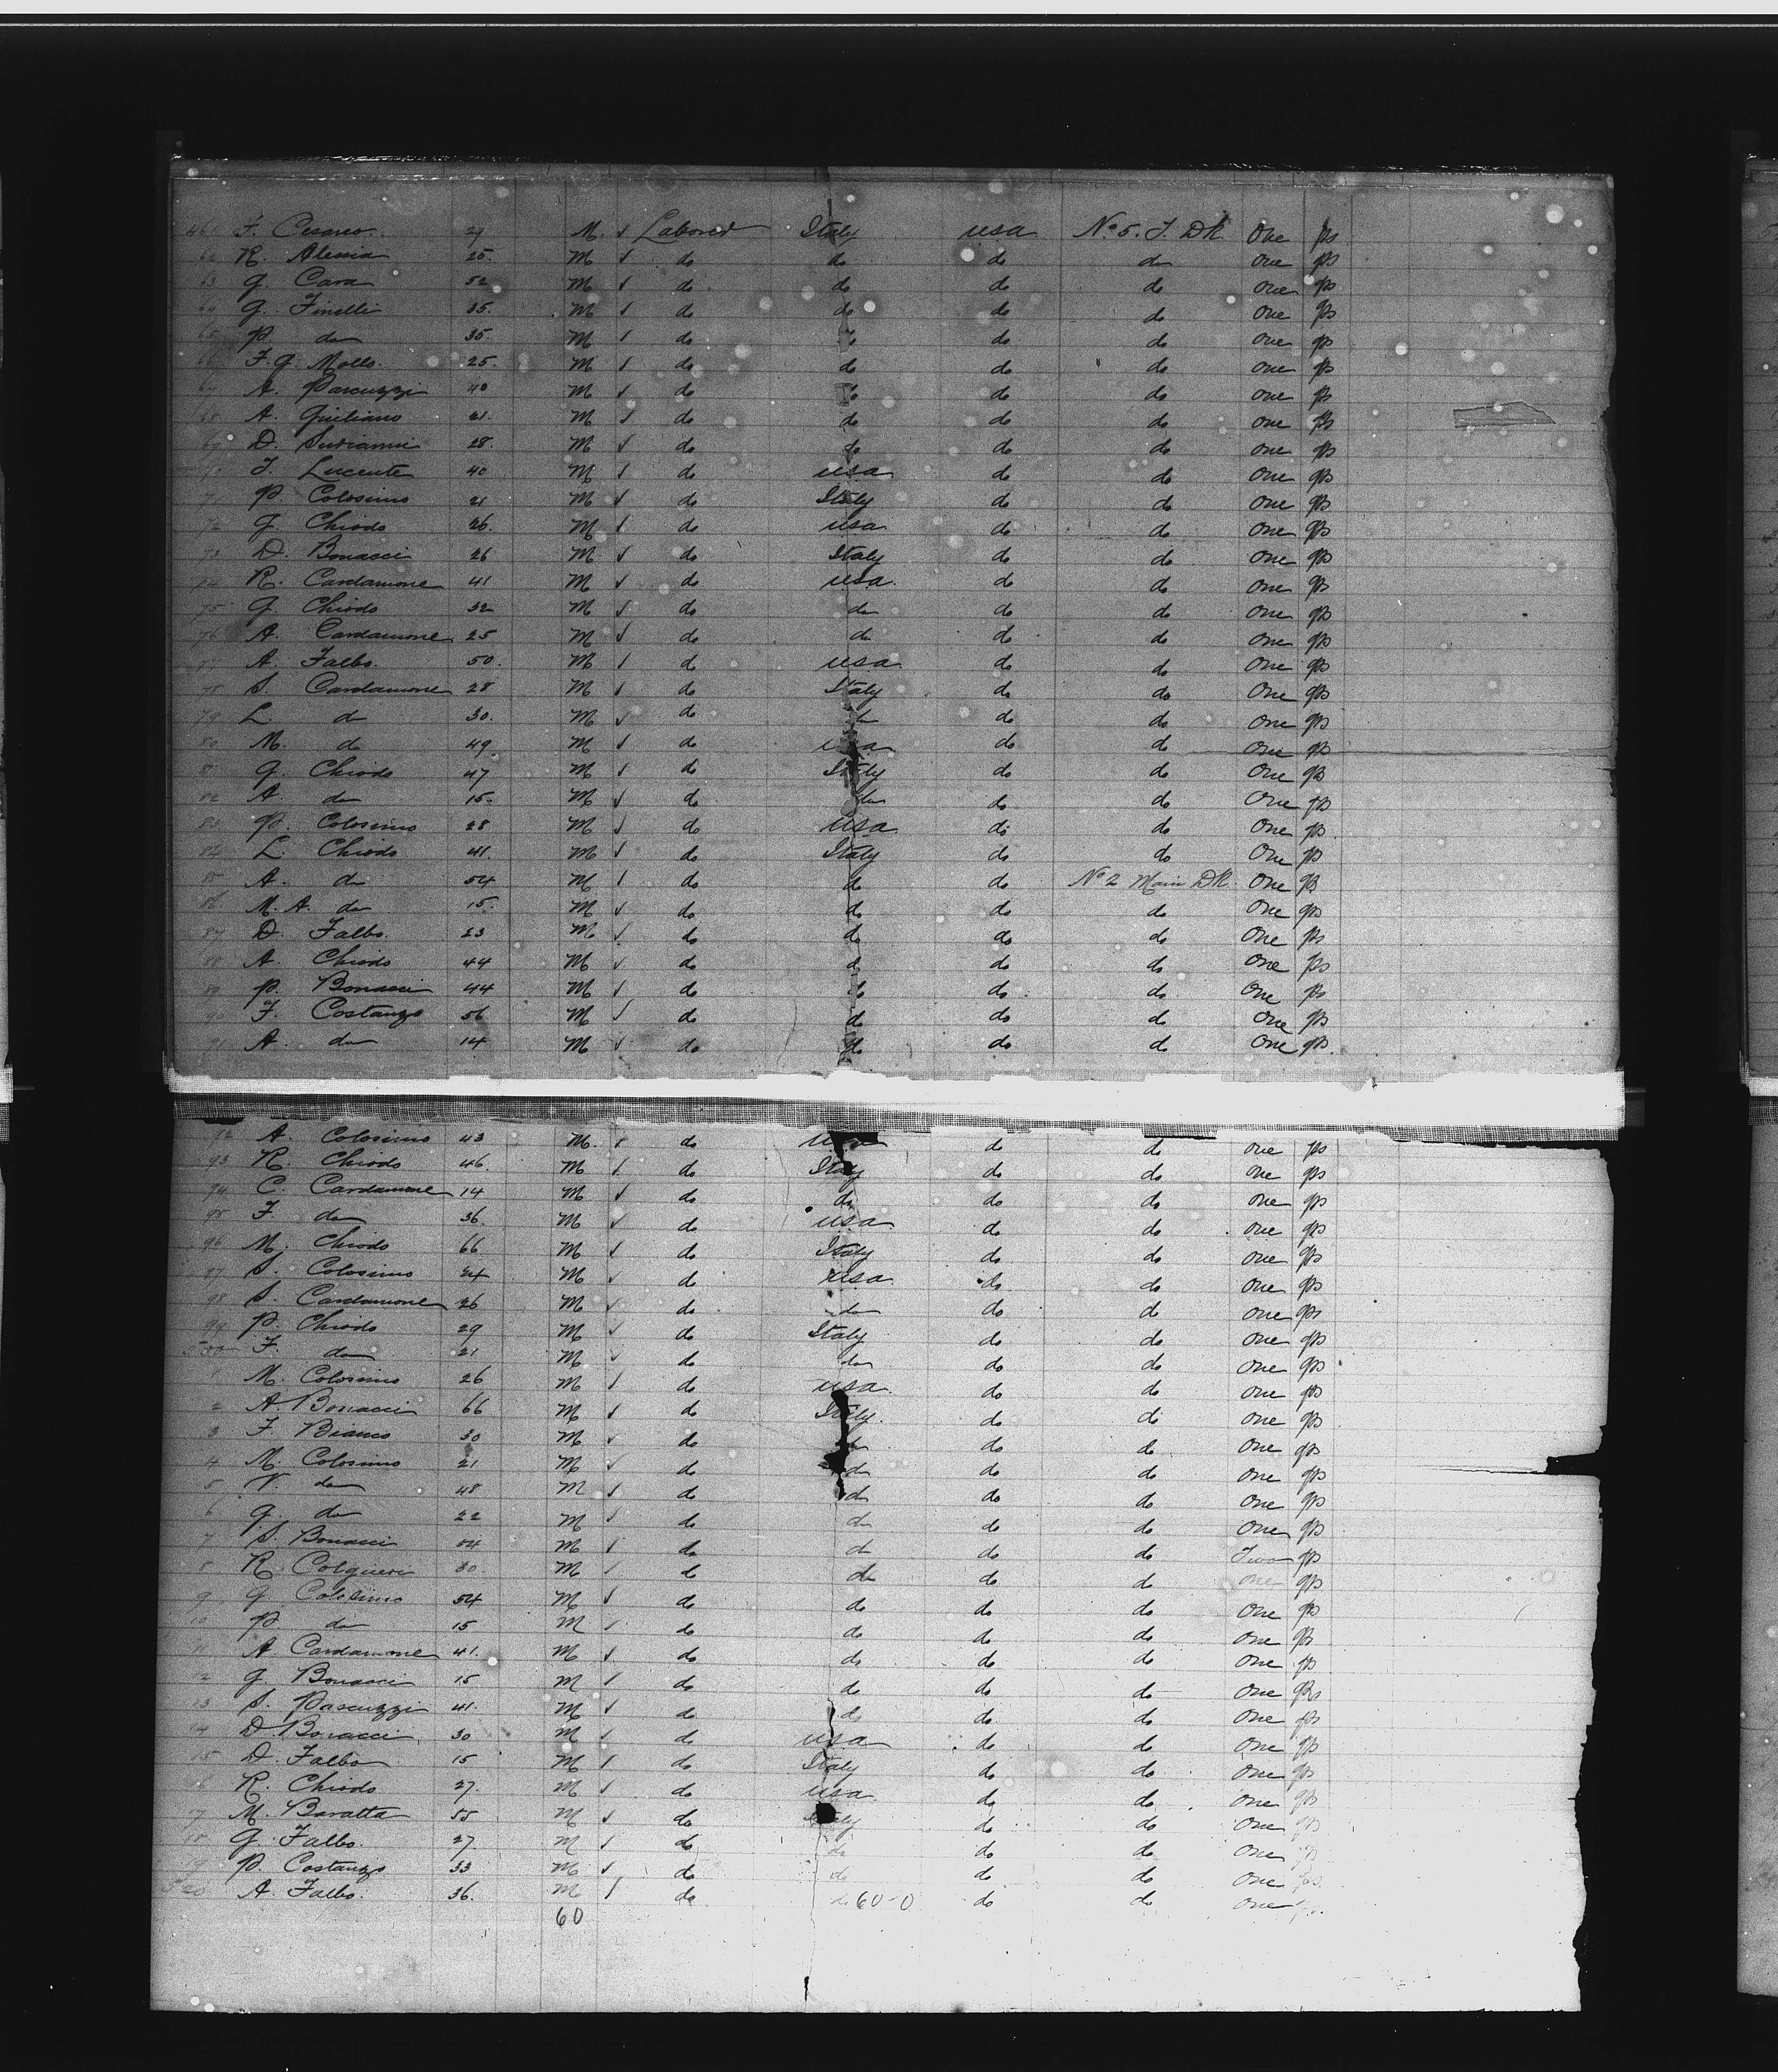 461 F. Cesareo 29 M. ✓ Laborer Italy usa No 5. J. DK. One ps
62 R. Alessia 25. M ✓ do do do do one ps
63 G. Cava 52 M ✓ do do do do one ps
64 G. Finelli 35. M ✓ do do do do one ps
65 P. do 35. M ✓ do do do one ps
66 F. G. Mollo. 25. M ✓ do do do do one ps
67 A. Pascuzzi 40 M ✓ do do do one ps
68 A. Giuliano 21. M ✓ do do do do one ps
69 D. 28. M ✓ do do do do One ps
70 F. Lucente 40 M ✓ do usa do do One ps
71 P. Colosimo 21 M ✓ do Italy do do One ps
72 G. Chiodo 26. M ✓ do usa do do One ps
73 D. Bonacci 26 M ✓ do Italy do do One ps
74 R. Cardamone 41 M ✓ do usa. do do One ps
75 G. Chiodo 32 M ✓ do do do do One ps
76 A. Cardamone 25 M ✓ do do do do One ps
77 A. Falbo. 50. M ✓ do usa do do One ps
78 S. Cardamone 28 M ✓ do Italy do do One ps
79 L. do 30. M ✓ do do do do One ps
80 M. do 49 M ✓ do usa do do One ps
81 G. Chiodo 47 M ✓ do Italy do do One ps
82 A. do 15. M ✓ do do do do One ps
83 P. Colosimo 28 M ✓ do usa do do One ps
84 L. Chiodo 41. M ✓ do Italy do do One ps
85 A. do 54 M ✓ do do do No 2 Main DK. One ps
86 M. A. do 15. M ✓ do do do do One ps
87 D. Falbo. 23 M ✓ do do do do One ps
88 A. Chiodo 44 M ✓ do do do do One ps
89 P. Bonacci 44 M ✓ do do do do One ps
90 F. Costanzo 56 M ✓ do do do do One ps
91 A. do 14 M ✓ do do do do One ps
92 A. Colosimo 43 M. ✓ do usa do do One ps
93 R Chiodo 46. M ✓ do Italy do do one ps
94 C. Cardamone 14 M ✓ do do do do one ps
95 F. do 36. M ✓ do usa do do one ps
96 M. Chiodo 66 M ✓ do Italy do do one ps
97 S. Colosimo 24 M ✓ do usa do do one ps
98 S. Cardamone 26 M ✓ do do do do one ps
99 P. Chiodo 29 M ✓ do Italy do do one ps
500 F. do 21 M ✓ do do do do one ps
1 M. Colosimo 26 M ✓ do usa. do do One ps
2 A. Bonacci 66 M ✓ do Italy. do do One ps
3 F. Bianco 30 M ✓ do do do do One ps
4 M. Colosimo 21 M ✓ do do do do One ps
5 V. do 48 M ✓ do do do do One ps
6 G. do 22 M ✓ do do do do One ps
7 S. Bonacci 54 M ✓ do do do do Two ps
8 R. 30. M ✓ do do do do one ps
9 G Colosimo 54 M ✓ do do do do One ps
10 P. do 15 M ✓ do do do do One ps
11 A Cardamone 41. M ✓ do do do do One ps
12 G Bonacci 15 M ✓ do do do do One ps
13 S. Pascuzzi 41. M ✓ do do do do One ps
14 D Bonacci 30 M ✓ do usa do do One ps
15 D. Falbo 15 M ✓ do Italy do do One ps
16 R. Chiodo 27. M ✓ do usa do do One ps
17 M. Baratta 55 M ✓ do Italy do do One ps
18 G. Falbo. 27 M ✓ do do do do one ps
19 P. Costanzo 33 M ✓ do do do do One ps
520 A Falbo. 36. M ✓ do do 60-0 do do one ps.
60